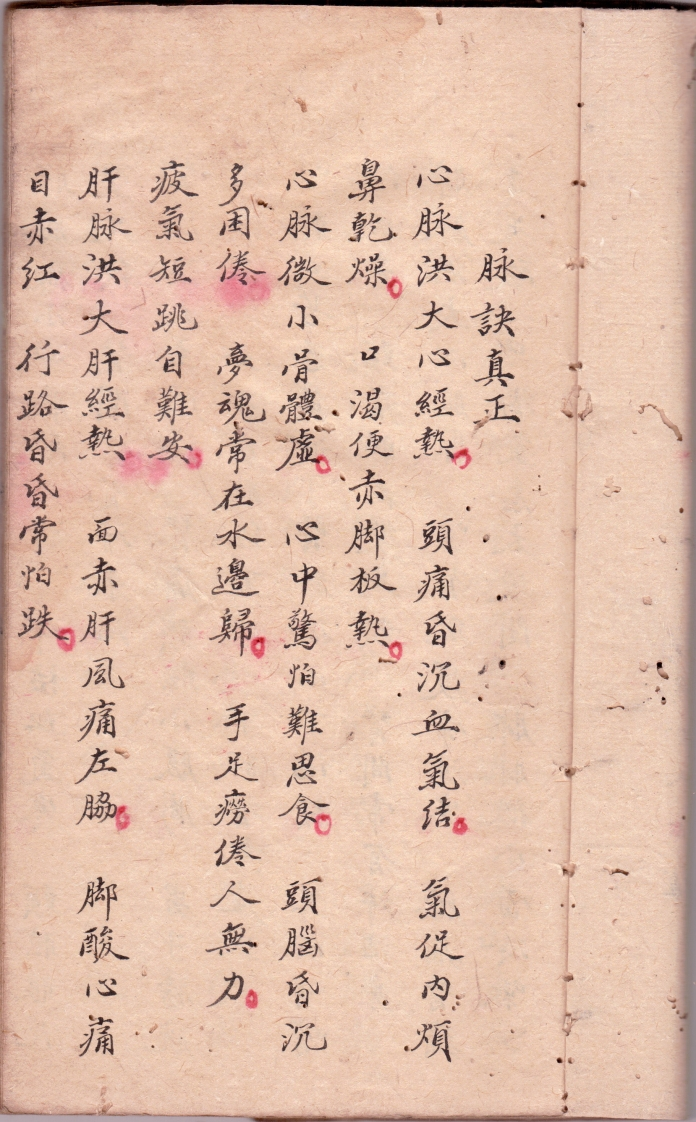 脉訣真正
心脉洪大心經热 頭痛昏沉血氣结 氣促内煩
鼻乾燥 口渴便赤脚板热
心脉微小骨體虚 心中驚怕難思食 頭腦昏沉
多困倦 夢魂常在水邊歸 手足癆倦人無力
疲氣短跳自難安
肝脉洪大肝經热 面赤肝風痛左脇 脚酸心痛
目赤红 行路昏昏常怕跌